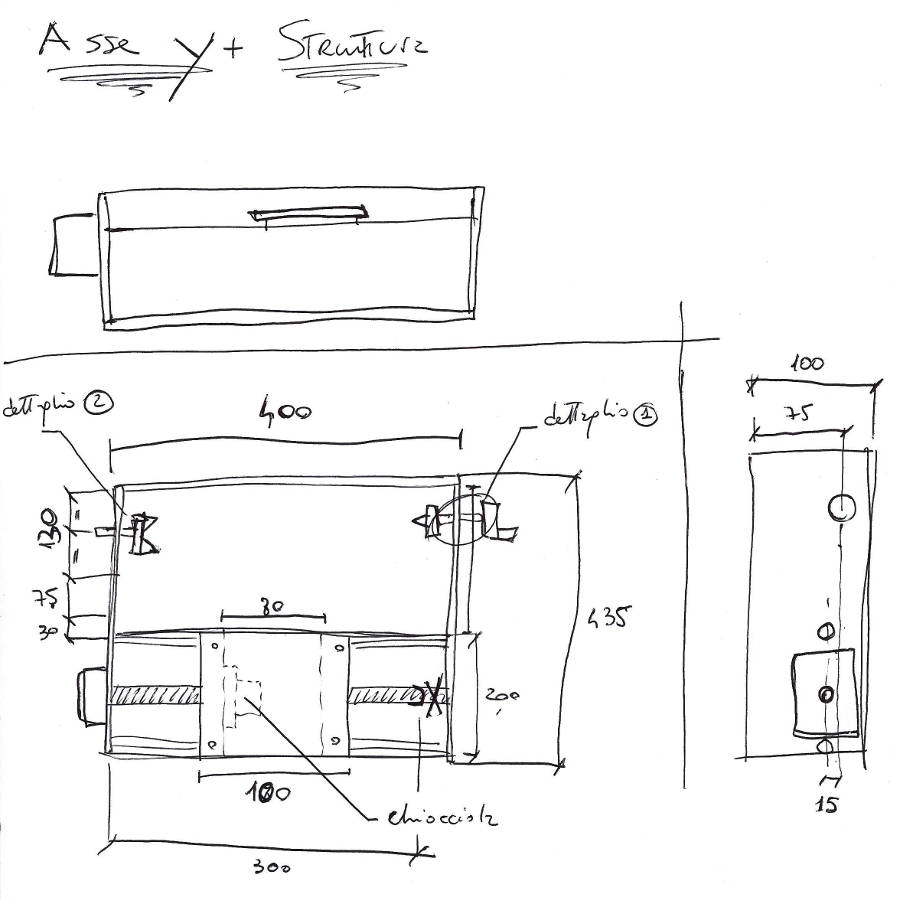 Asse Y + Struttura
100
dettaglio 2
400
dettaglio 1
75
130
=
=
75
30
80
435
200
100
chiocciola
15
300